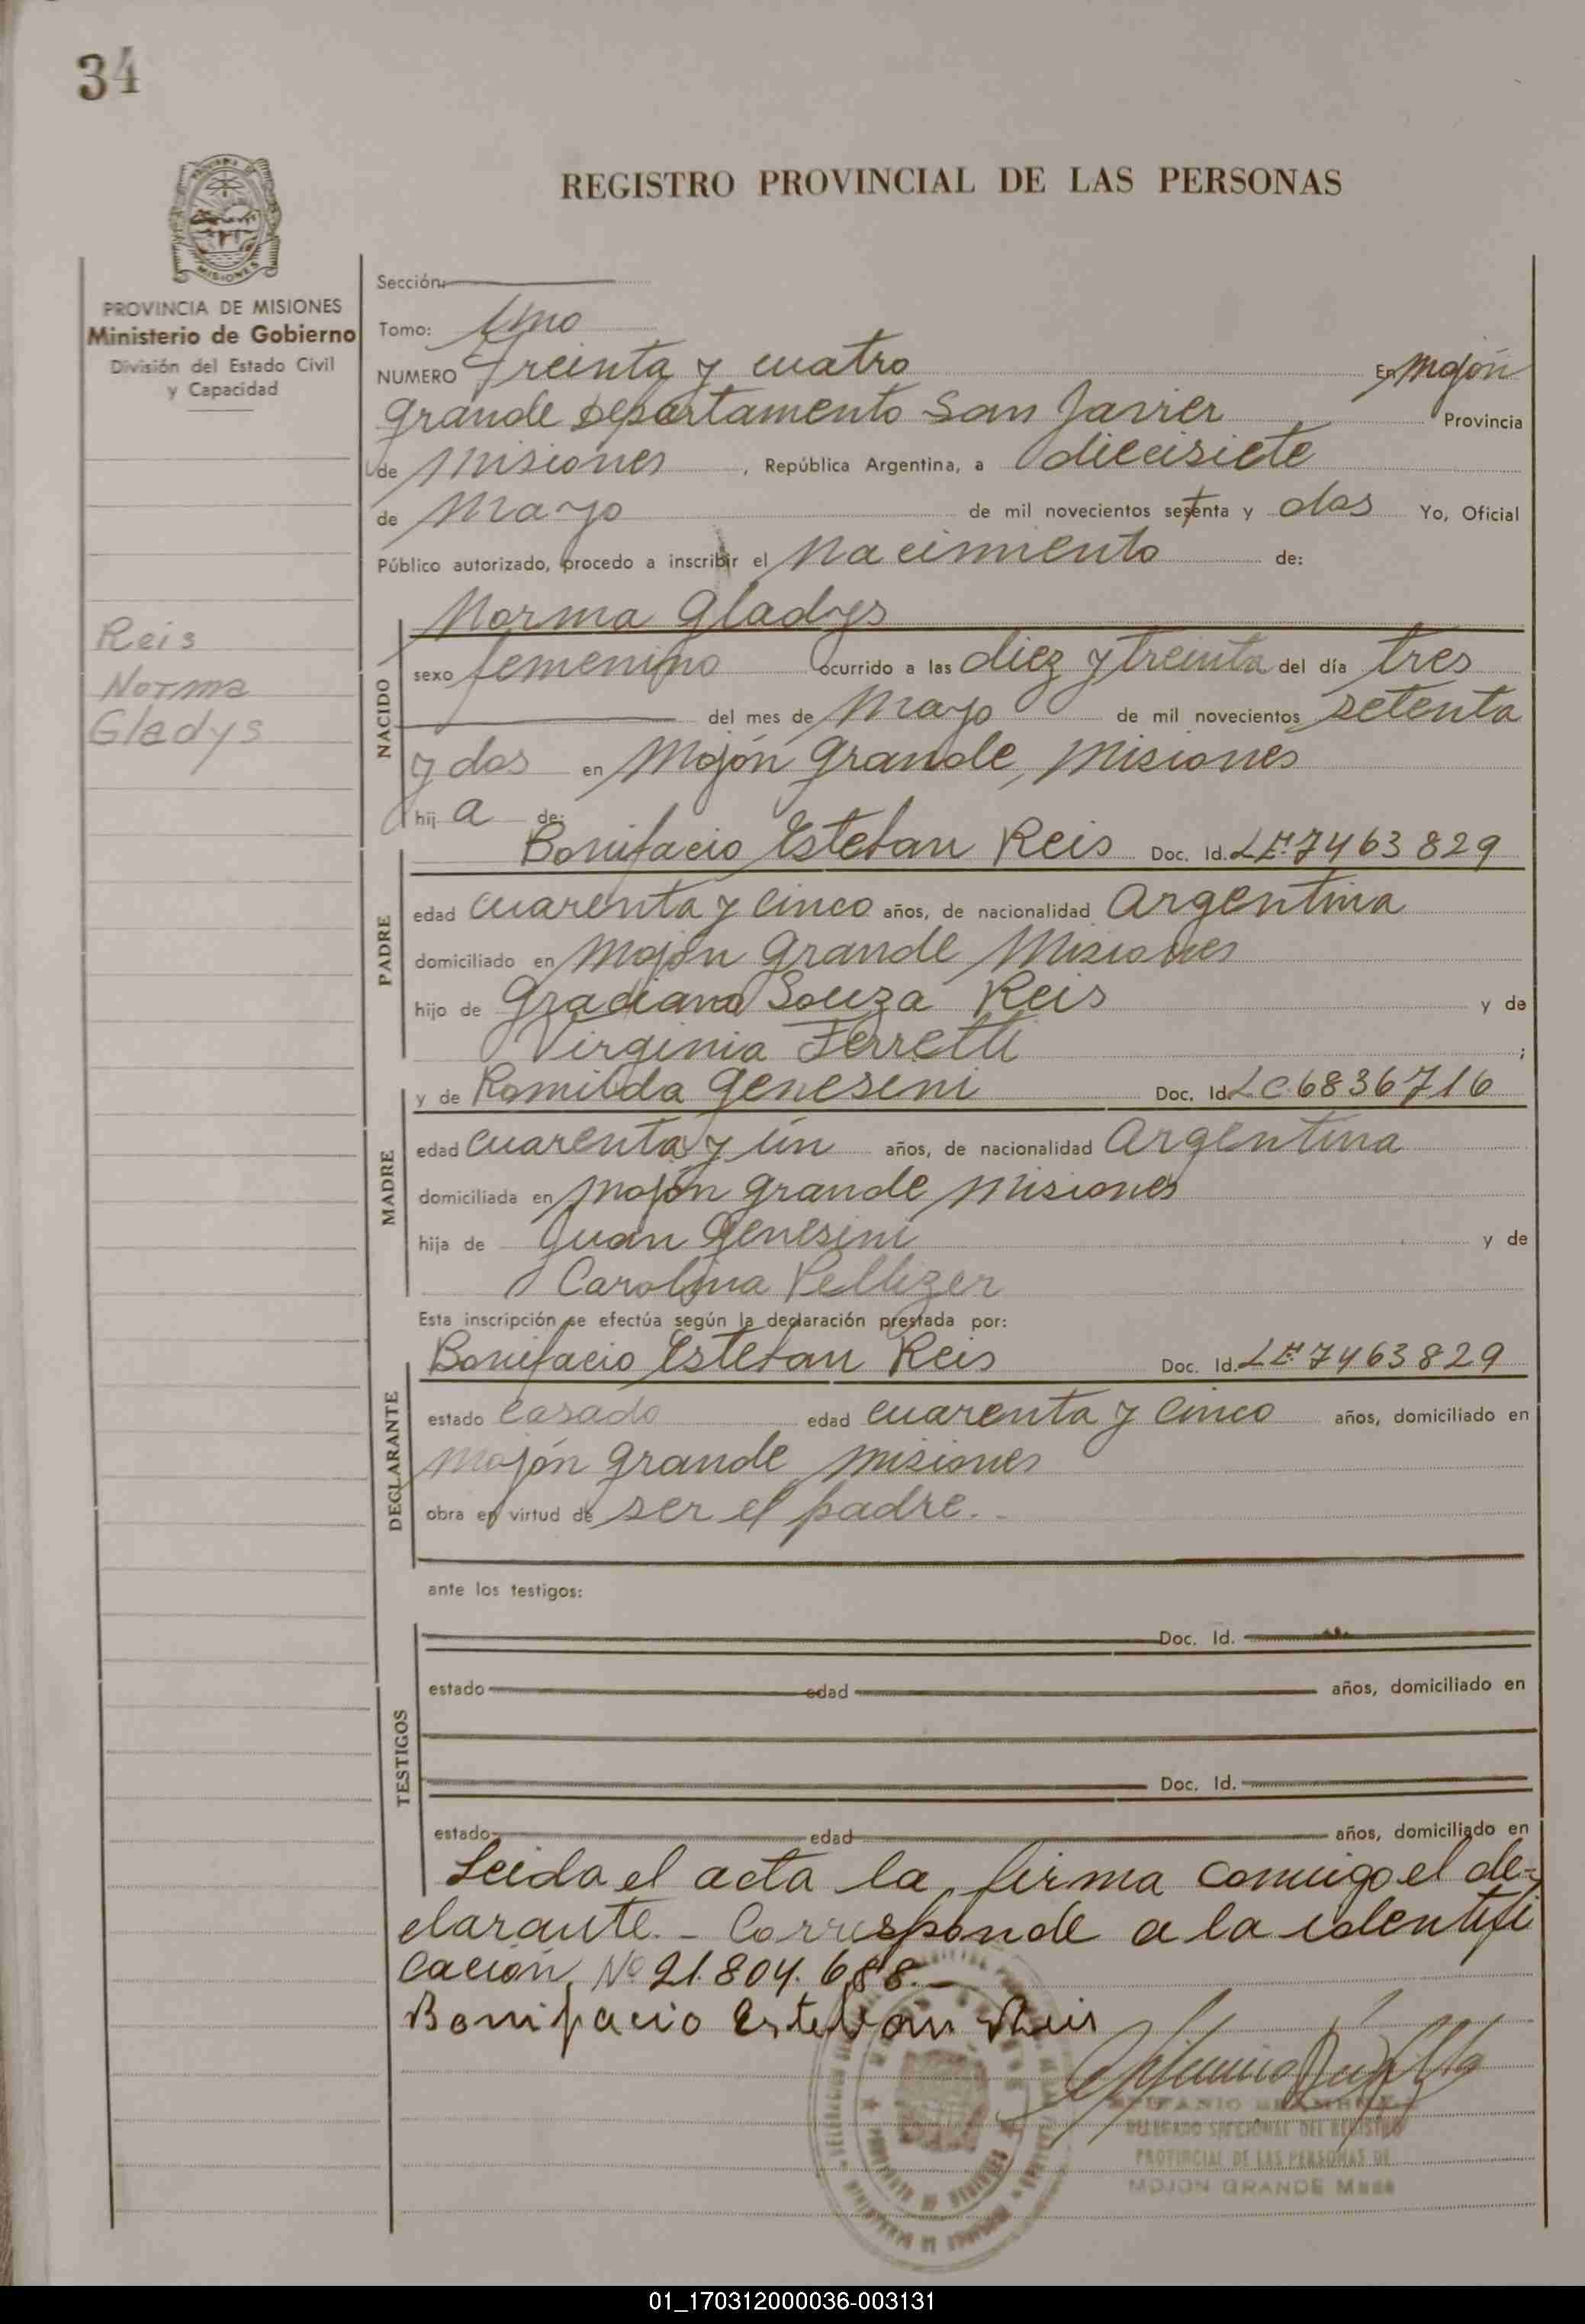 34
REGISTRO PROVINCIAL DE LAS PERSONAS
MISIONES
PROVINCIA DE MISIONES
Ministerio de Gobierno
División del Estado Civil
y Capacidad
Reis
Norma
Gladys
Sección:
Tomo: Uno
NUMERO Treinta y cuatro En Mojón
Grande Departamento San Javier Provincia
de Misiones , República Argentina, a diecisiete
de Mayo de mil novecientos setenta y dos Yo, Oficial
Público autorizado, procedo a inscribir el Nacimiento de:
NACIDO
Norma Gladys
sexo femenino ocurrido a las diez y treinta del día tres
del mes de Mayo de mil novecientos setenta
y dos en Mojón Grande, Misiones
hij a de:
PADRE
Bonifacio Esteban Reis Doc. Id. L.E. 7463829
edad cuarenta y cinco años, de nacionalidad Argentina
domiciliado en Mojón Grande Misiones
hijo de Graciano Souza Reis y de
Virginia Ferretti ;
MADRE
y de Romilda Genesini Doc. Id. L C. 6836716
edad cuarenta y ún años, de nacionalidad Argentina
domiciliada en Mojón Grande Misiones
hija de Juan Genesini y de
Carolina Pellizer
Esta inscripción se efectúa según la declaración prestada por:
DECLARANTE
Bonifacio Esteban Reis Doc. Id. L.E. 7463829
estado casado edad cuarenta y cinco años, domiciliado en
Mojón Grande Misiones
obra en virtud de ser el padre. -
ante los testigos:
TESTIGOS
Doc. Id.
estado edad años, domiciliado en
Doc. Id.
estado edad años, domiciliado en
Leida el acta la firma conmigo el de-
clarante. - Corresponde a la identifi
cación Nº 21.804.688.-
Bonifacio Estevan Reis
DELEGADO SECCIONAL DEL REGISTRO
PROVINCIAL DE LAS PERSONAS DE
MOJON GRANDE Mnes
01_170312000036-003131